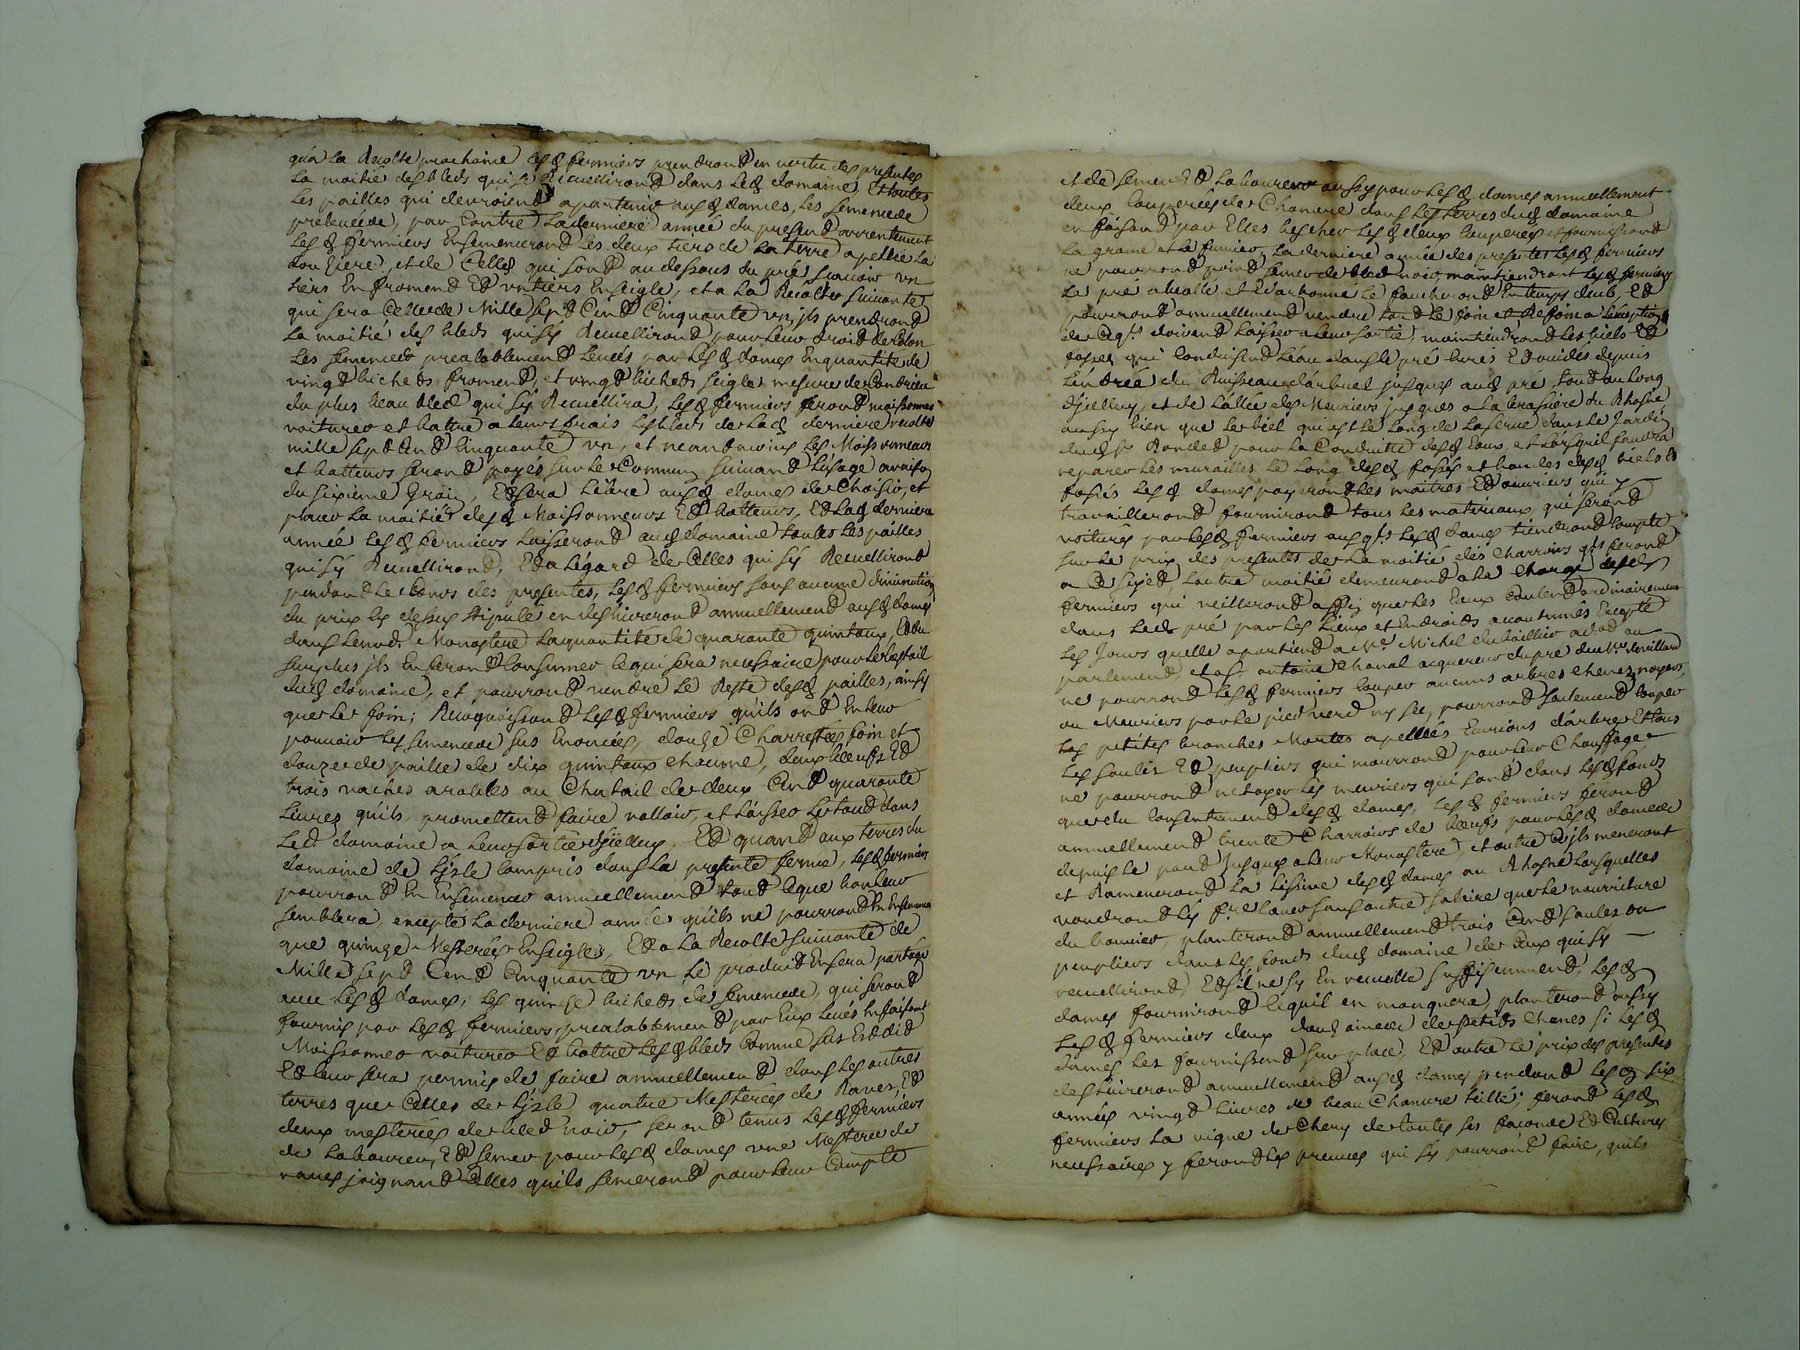 qu'a la Recolte prochaine les d fermiers prendront en vertu des presentes
La moitié des bleds qui se Recuelliront dans led domaine Et toutes
Les pailles qui devroient apartenir ausd dames, les semences
prelevées, par Contre La derniere année du present arrentement
Les d fermiers Ensemenceront Les deux tiers de La terre apellée La
et de Celles qui sont au dessous du pré scavoir un
tiers En froment Et un tiers En seigle, et a La Recolte suivante
qui sera Celle de Mille sept Cent Cinquante un, ils prendront
La moitié des bleds qui s'y Recuelliront pour leur droit de Colon
Les semences prealablement levées par Lesd dames En quantité de
vingt bichets froment, et vingt bichets seigle mesure de Condrieu
du plus beau bled qui s'y Recuellira, Lesd fermiers feront moissonner
voiturer et battre a leurs frais Les bleds de Lad derniere recolte
mille sept Cent Cinquante un, et neantmoins Les Moissonneurs
et batteurs seront payés sur le Commun suivant L'usage a raison
du sixieme Grain, Et sera Libre ausd dames de Choisir, et
placer La moitié desd Moissonneurs Et batteurs, Et Lad derniere
année Lesd fermiers Laisseront aud domaine toutes Les pailles
qui s'y Recuelliront, Et a L'égard de Celles qui s'y Recuelliront
pendant Le Cours des presentes, Lesd fermiers sans aucune diminution
du prix cy dessus stipulé en deslivreront annuellement ausd dames
dans Leurd Monastere La quantité de quarante quintaux, Et du
surplus ils En feront Consumer ce qui sera necessaire pour le bestail
dud domaine, et pourront vendre Le Reste desd pailles, ainsy
que le foin; Recognoissant Lesd fermiers qu'ils ont En leur
pouvoir Les semences sus Enoncées, douze Charrettées foin et
douze de paille de dix quintaux chacune, deux boeufs Et
trois vaches arables au Chatail de deux Cent quarante
Livres qu'ils promettent faire valloir, et Laisser Le tout dans
Led domaine a Leur sortie d'jcelluy, Et quant aux terres du
domaine de L'jsle Compris dans La presente ferme, Lesd fermiers
pourront En Ensemencer annuellement tout ce que bon Leur
semblera, excepté La derniere année qu'ils ne pourront En Ensemencer
que quinze Mesterées En seigle, Et a La Recolte suivante de
Mille sept Cent Cinquante un Le produit En sera partagé
avec Lesd dames, Les quinze bichets de semence, qui seront
fournis par Lesd fermiers, prealablement par Eux Levés En faisant
Moissonner voiturer Et battre Lesd bleds Comme sus Est dit
Et Leur sera permis de faire annuellement dans Les autres
terres que Celles de L'jsle quatre Mesterées de Raves, Et
deux mesterées de bled noir, seront tenus Lesd fermiers
de Labourer, Et semer pour Lesd dames une Mesterée de
raves joignant Celles qu'ils semeront pour Leur Compte
et de semer Et Labourer aussy pour Lesd dames annuellement
deux Couperées de Chanvre dans Les terres dud domaine
en faisant par Elles becher Lesd deux Couperées et fournissant
La graine et Le fumier, La derniere année des presentes Lesd fermiers
ne pourront point semer de bled noir, maintiendront Lesd fermiers
Le pré et Le faucheront En temps deub, Et
pourront annuellement vendre tout Le foin et Refoin a L'exception
de Ce qu'ils doivent Laisser a Leur sortie, maintiendront Les biels Et
fossés qui Conduisent L'eau dans Le pré Curés Et vuidés depuis
L'entrée du Ruisseau d'arbuel jusques aud pré, tout au Long
d'jcelluy, et de L'allée des Meuriers jusques a La brassiere du Rhosne
aussy bien que Le biel qui est Le Long de La serve dans Le Jardin
dud Sr Rondet pour La Conduitte desd Eaux, et Lorsqu'il faudra
reparer Les murailles Le Long desd fossés et bandes desd biels et
fossés Lesd dames payeront Les maitres Et ouvriers qui y
travailleront fourniront tous Les materiaux, qui seront
voiturés par Lesd fermiers ausq.ls Lesd dames tiendront Compte
sur Le prix des presentes de La moitié des Charrois q.ls feront
a Ce sujet, L'autre moitié demeurant a La Charge desd
fermiers qui veilleront affin que Les Eaux Coulent ordinairement
dans Led pré par Les Lieux et Endroits accoutumés Excepté
Les Jours qu'elle apartient a Mr Michel du baillier advocat au
parlement et a sr antoine Chanal acquereur du pré du
ne pourront Lesd fermiers Couper aucuns arbres chenes, noyers,
ou Meuriers par Le pied verd ny sec, pourront seulement Couper
Les petites branches Mortes apellées d'arbres Et tous
Les saules Et peupliers qui mourront pour Leur Chauffage
ne pourront Les meuriers qui sont dans Lesd fonds
que du Consentement desd dames, Lesd fermiers feront
annuellement trente Charrois de boeufs pour Lesd dames
depuis Le port Jusques a Leur Monastere, et outre Ce ils meneront
et Rameneront La Lissive desd dames au Rhosne Lorsquelles
voudront L'y f.re Laver sans autre salaire que La nourriture
du bouvier, planteront annuellement trois Cent saules ou
peupliers dans Les fonds dud domaine de Ceux qui s'y
recuelliront, Et s'il ne s'y En recuelle suffisemment, Lesd
dames fourniront Ce qu'il en manquera, planteront aussy
Lesd fermiers deux douzaines de petits chenes si Lesd
dames Les fournissent sur place, Et outre Le prix des presentes
deslivreront annuellement ausd dames pendant Lesd six
années vingt Livres de beau Chanvre teillé; feront Lesd
fermiers La vigne de Chery de toutes ses facons Et Cultures
necessaires y feront Les preuves qui s'y pourront faire, qu'ils